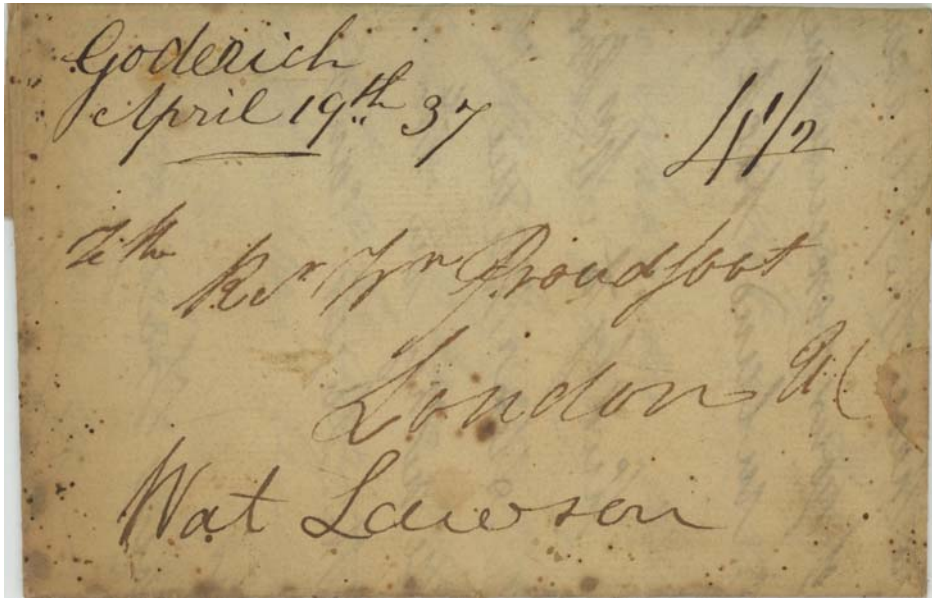 Goderich
April 19th 37
4 1/2
To the
Revr Wm Proudfoot
London UC
Wat Lawson